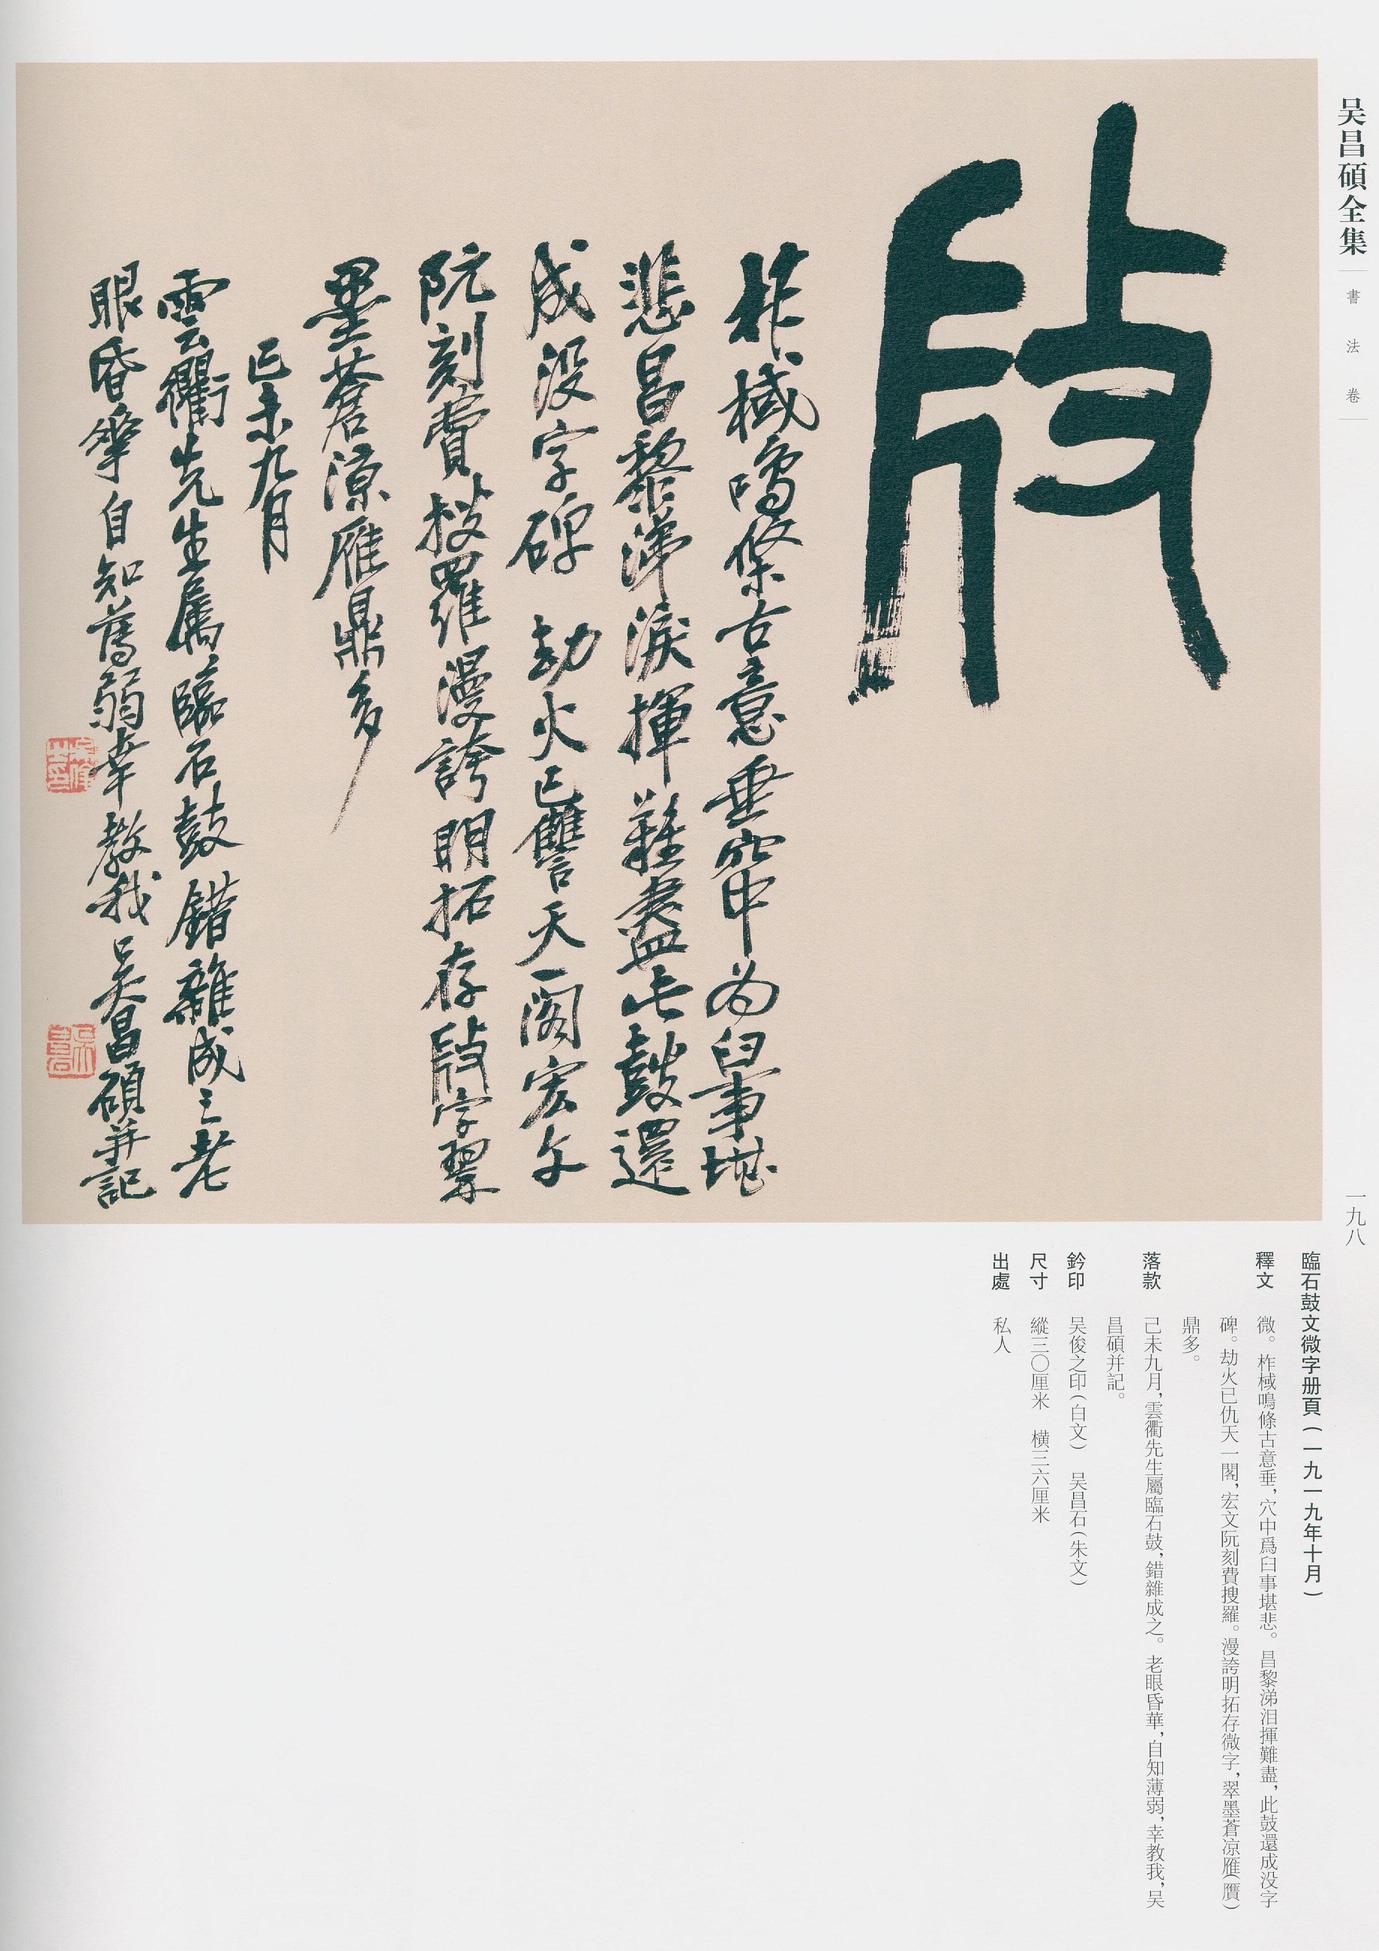 吴昌碩全集
書法卷
一九八
柞棫鳴條古意垂穴中為臼事堪
悲昌黎涕淚揮難盡此鼓還
成没字碑劫火已讐天一阁宏文
阮刻費搜羅漫誇明拓存𢼸字翠
墨蒼涼雁鼎多
己未九月
雲衢先生属臨石鼓錯雜成之老
眼昏華自知薄弱幸教我吴昌碩并記
臨石鼓文微字册頁(一九一九年十月)
釋文 微。柞棫鳴條古意垂,穴中爲臼事堪悲。昌黎涕泪揮難盡,此鼓還成没字
碑。劫火已仇天一閣,宏文阮刻費搜羅。漫誇明拓存微字,翠墨蒼凉雁(贋)
鼎多。
落款 己未九月,雲衢先生屬臨石鼓,錯雜成之。老眼昏華,自知薄弱,幸教我,吴
昌碩并記。
鈐印 吴俊之印(白文) 吴昌石(朱文)
尺寸 縱三〇厘米 横三六厘米
出處 私人